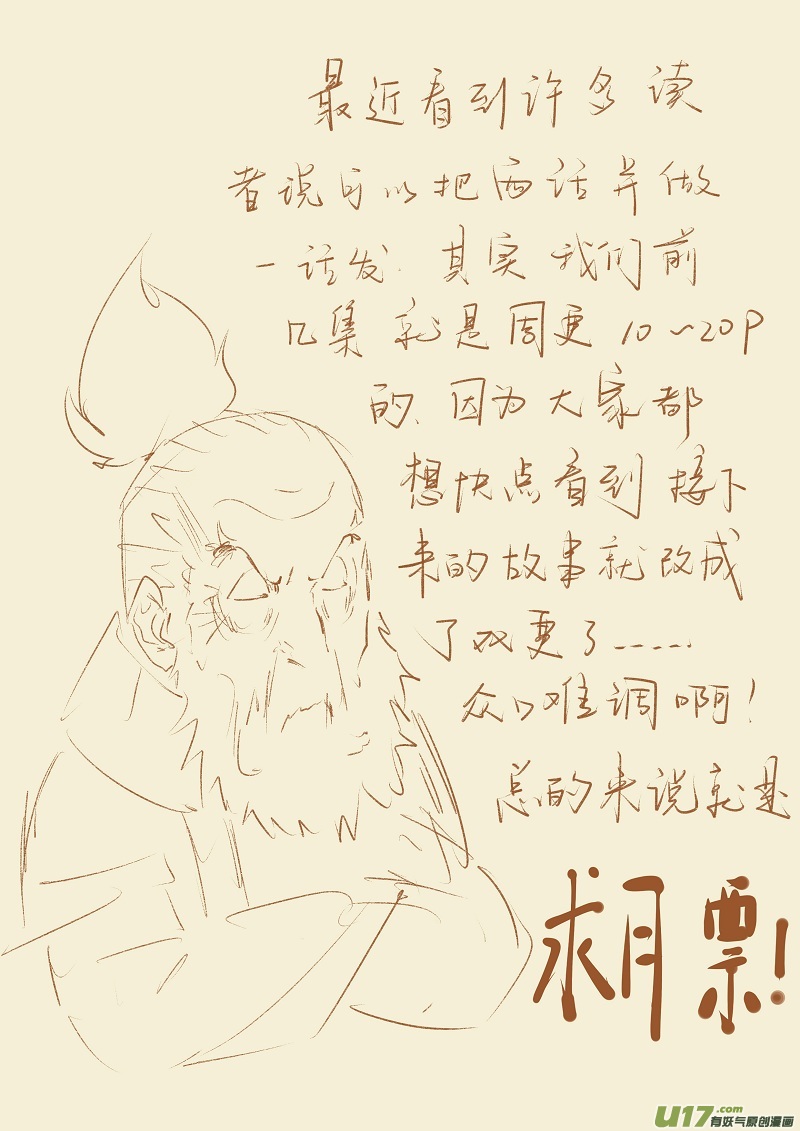 最近看到许多读
者说可以把两话并做
一话发.其实我们前
几集就是周更10~20P
的、因为大家都
想快点看到接下
来的故事就改成
了双更了……
众口难调啊！
总的来说就是
求月票！
U17.com
有妖气原创漫画